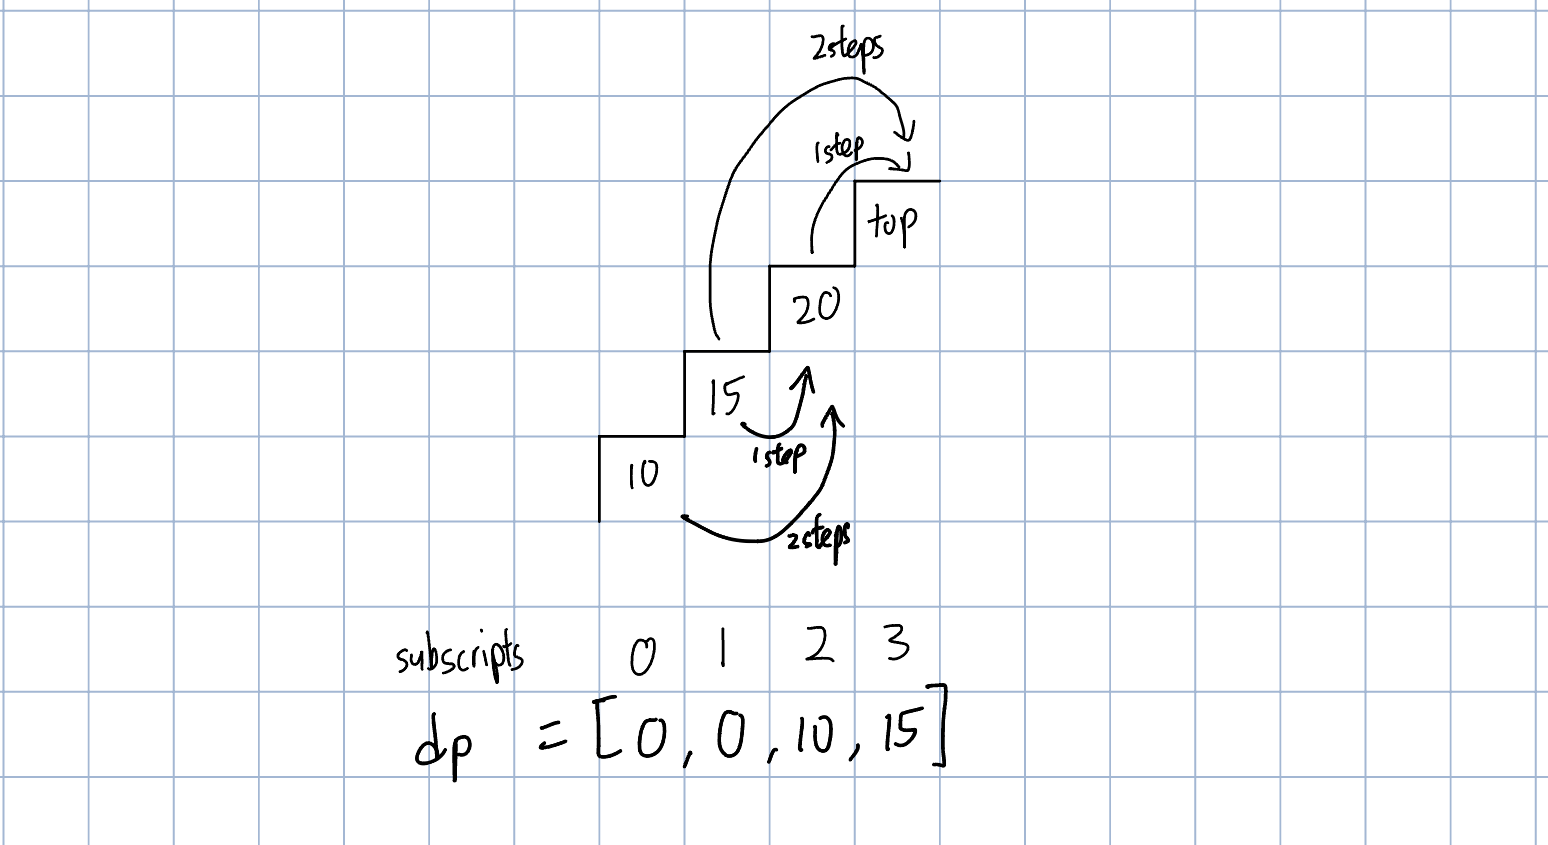 2steps
1step
top
20
15
1step
10
2steps
subscripts 0 1 2 3
dp = [0, 0, 10, 15]